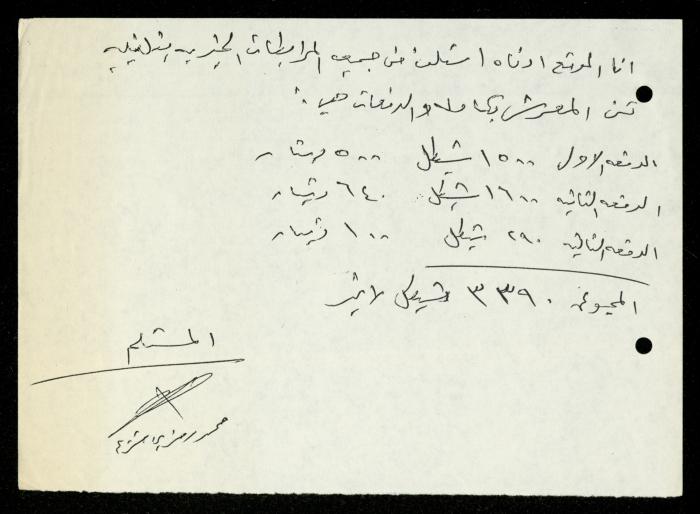 انا الموقع ادناه استلمت من جمعيه المرابطات الخيريه بقلقيليه
ثمن المعرش بكامله والدفعات هي:
الدفعه الاول ١٥٠٠ شيكل ٥٠٠ دينار
الدفعه الثانيه ١٦٠٠ شيكل ٦٤٠ دينار
الدفعه الثالثه ٢٩٠ شيكل ١٠٠ دينار
المجموع ٣٣٩٠ شيكل لا غير
المستلم
محمد رمزي